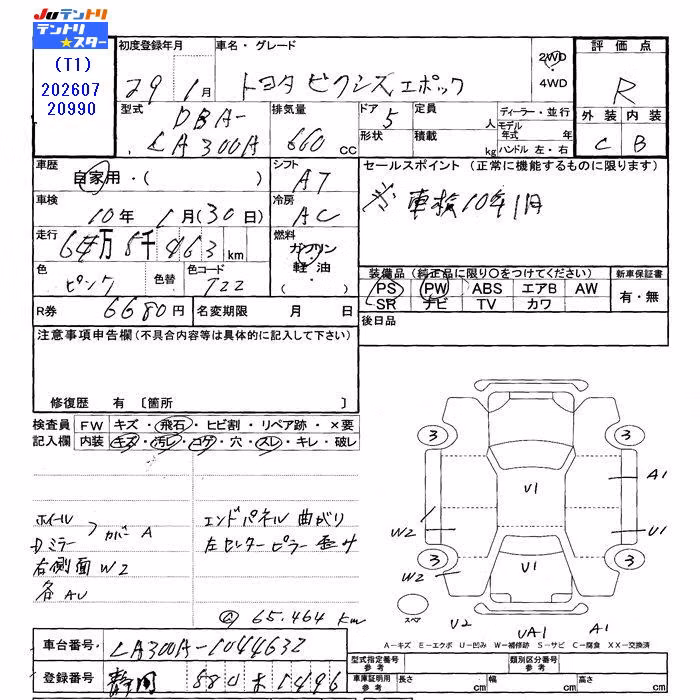 JUテントリ
テントリ★スター
(T1)
202607
20990
初度登録年月
29 1月
車名・グレード
トヨタ ピクシスエポック
2WD
・
4WD
評価点
R
外装 内装
C B
型式
DBA-
LA300A
排気量
660 cc
ドア
5
形状
定員
人
積載
kg
ディーラー・並行
モデル年式 年
ハンドル 左・右
車歴
自家用・( )
シフト
AT
セールスポイント (正常に機能するものに限ります)
車検10年1月
車検
10年 1月(30日)
冷房
AC
走行
6万5千463 km
燃料
ガソリン
軽油・
色
ピンク
色替
色コード
T22
装備品 (純正品に限り○をつけてください)
新車保証書
PS PW ABS エアB AW
SR ナビ TV カワ
有・無
R券 6680円
名変期限 月 日
後日品
注意事項申告欄(不具合内容等は具体的に記入して下さい)
修復歴 有 〔箇所 〕
検査員記入欄
FW キズ・飛石・ヒビ割・リペア跡・×要
内装 キズ・汚レ・コゲ・穴・スレ・キレ・破レ
ホイール
Dミラー
カバーA
右側面W2
各AU
エンドパネル曲がり
左センターピラー歪み
@65.464 km
3 3
A1
U1
W2 U1
3 3
W2
U1
スペア
U2
UA1
A1
A-キズ E-エクボ U-凹み W-補修跡 S-サビ C-腐食 XX-交換済
車台番号 LA300A-1044632
登録番号 静岡 580 ホ 1496
型式指定番号
参考
類別区分番号
参考
車庫証明用
参考
長さ cm
幅 cm
高さ cm